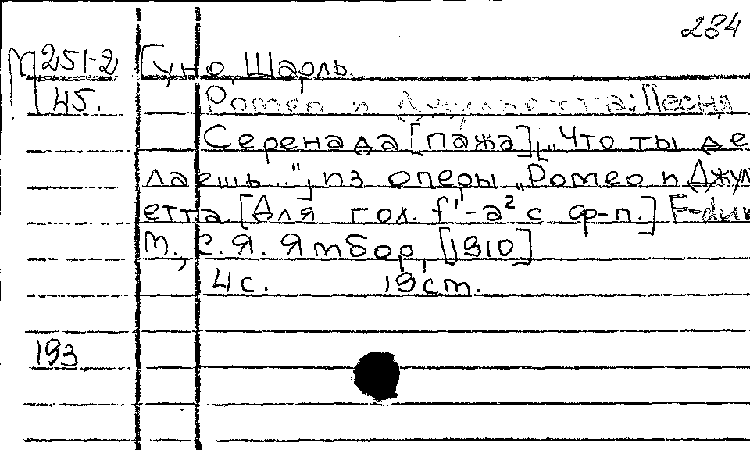 284
М 251-2 Гуно, Шарль.
45. Ромео и Джульетта: Песня
Серенада [пажа] „Что ты де
лаешь..."; из оперы „Ромео и Джул
етта. [Для гол. f¹-a² с ф-п.] F-dur
М., С. Я. Ямбор, [1910]
4 с. 19 ст.
193